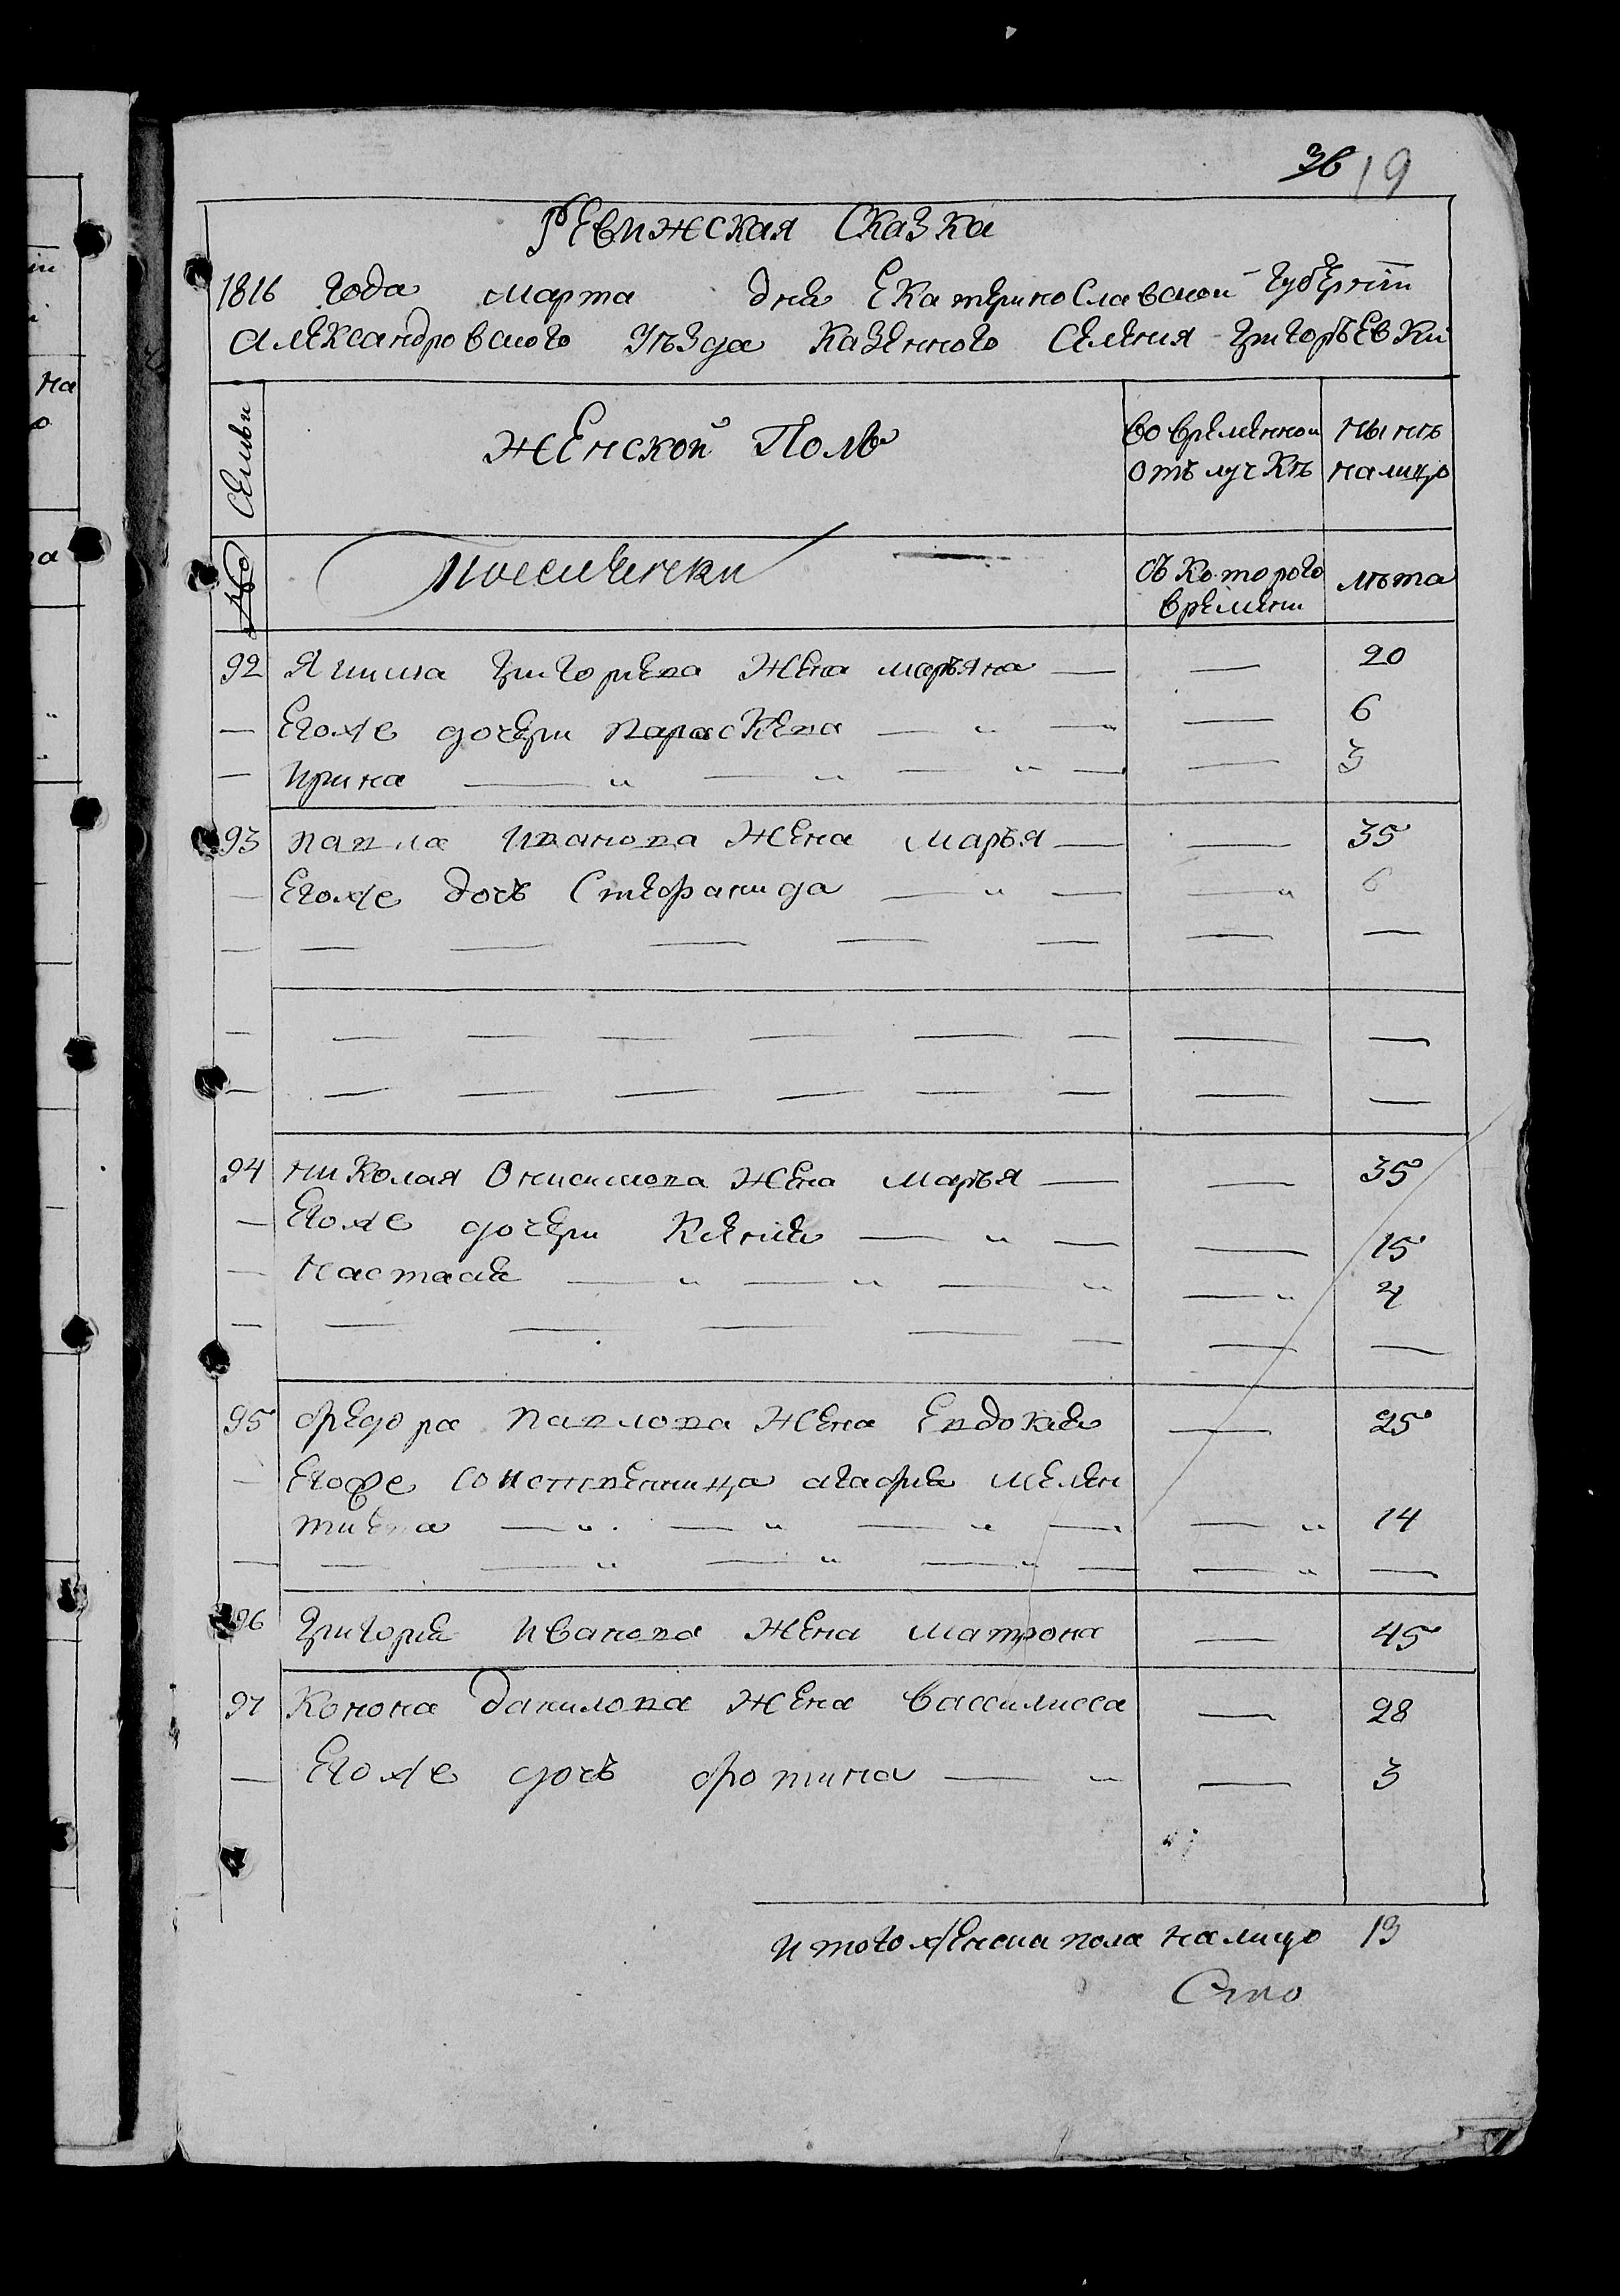 36 19
Ревижская Сказка
1816 года марта дня Екатеринославской Губерніи
Александровского Уѣзда Казенного Селения Григорьевки
Семьи
Женской Полъ
во временной
отълучкѣ
нынѣ
налицо
№
съ которого
времени
лѣта
92 Якима Григорьева Жена марьяна — — 20
— Егоже дочери Параскева — " — — 6
— Ирина — " — " — " — — 3
93 павла Иванова Жена Марья — — 35
— Егоже дочь Стефанида — " — — " 6
— — — — — — — —
— — — — — — — — —
— — — — — — — — —
94 николая Онисимова Жена Марья — — 35
— Егоже дочери Ксения — " — — 15
— Настасия — " — " — " — " 4
— — — — — — — —
95 федора Павлова Жена Евдокия — 25
— Егоже агафия мелен
тиева — " — " — " — — " 14
— — — " — " — " — — " —
96 Григория Иванова Жена Матрона — 45
97 Конона Данилова Жена Вассилисса — 28
— Егоже дочь фотина — " — 3
Итого женска пола налицо 13